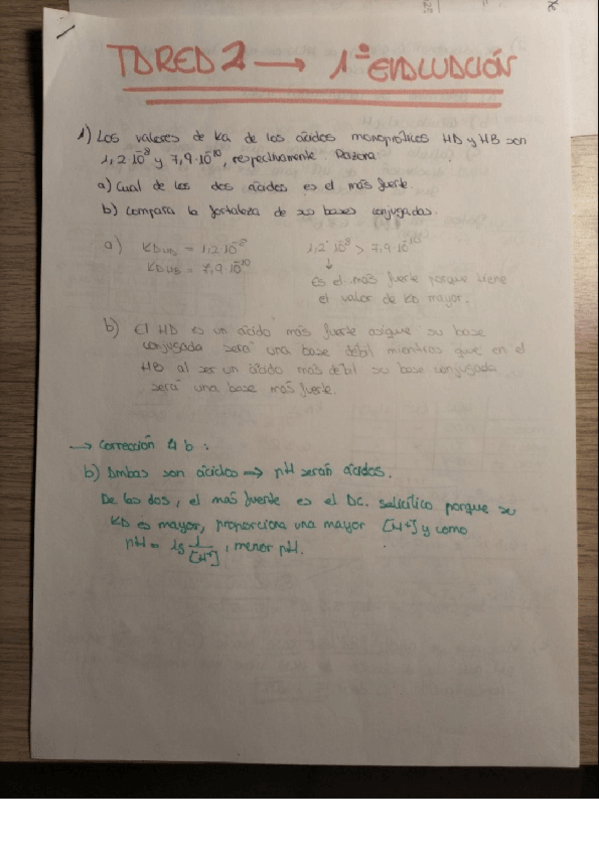 TAREA 2 → 1ª EVALUACIÓN
1) Los valores de Ka de los ácidos monopróticos HA y HB son
1,2·10⁻⁸ y 7,9·10⁻¹⁰, respectivamente Razona
a) Cual de los dos ácidos es el más fuerte.
b) compara la fortaleza de sus bases conjugadas.
a) KA HA = 1,2·10⁻⁸ 1,2·10⁻⁸ > 7,9·10⁻¹⁰
KA HB = 7,9·10⁻¹⁰ ↓
Es el más fuerte porque tiene
el valor de KA mayor.
b) El HA es un ácido más fuerte asique su base
conjugada será una base débil mientras que en el
HB al ser un ácido más débil su base conjugada
será una base más fuerte.
→ Corrección 4 b :
b) Ambas son ácidos → pH serán ácidos.
De los dos, el más fuerte es el Ac. salicílico porque su
KA es mayor, proporciona una mayor [H⁺] y como
pH = lg 1/[H⁺] , menor pH.